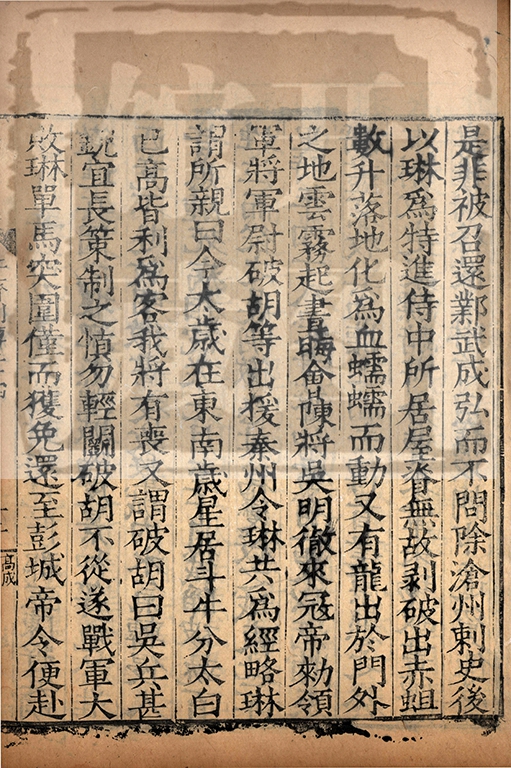 是非被召還鄴武成弘而不問除滄州刺史後
以琳爲特進侍中所居屋脊無故剥破出赤蛆
數升落地化爲血蠕蠕而動又有龍出於門外
之地雲霧起晝晦會陳將吳明徹來寇帝勑領
軍將軍尉破胡等出援秦州令琳共爲經略琳
謂所親曰今太歲在東南歲星居斗牛分太白
已高皆利爲客我將有喪又謂破胡曰吳兵甚
銳宜長策制之慎勿輕鬭破胡不從遂戰軍大
敗琳單馬突圍僅而獲免還至彭城帝令便赴
高成